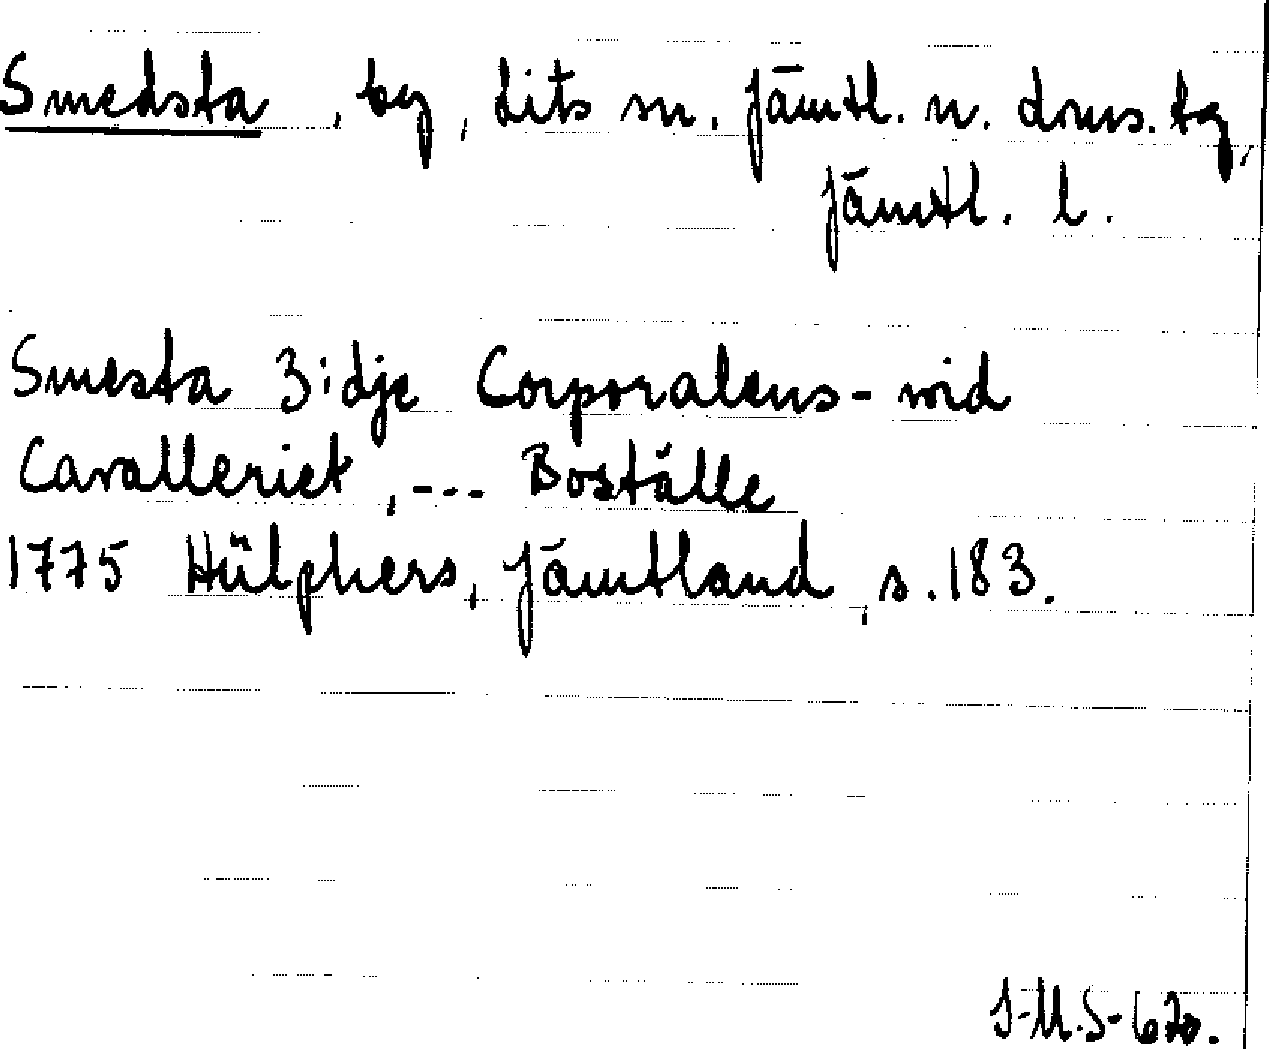 Smedsta, by, Lits sn. Jämtl. n. doms. tg,
Jämtl. l.
Smesta 3:dje Corporalens - wid
Cavalleriet, --- Boställe
1775 Hülphers, Jämtland, s. 183.